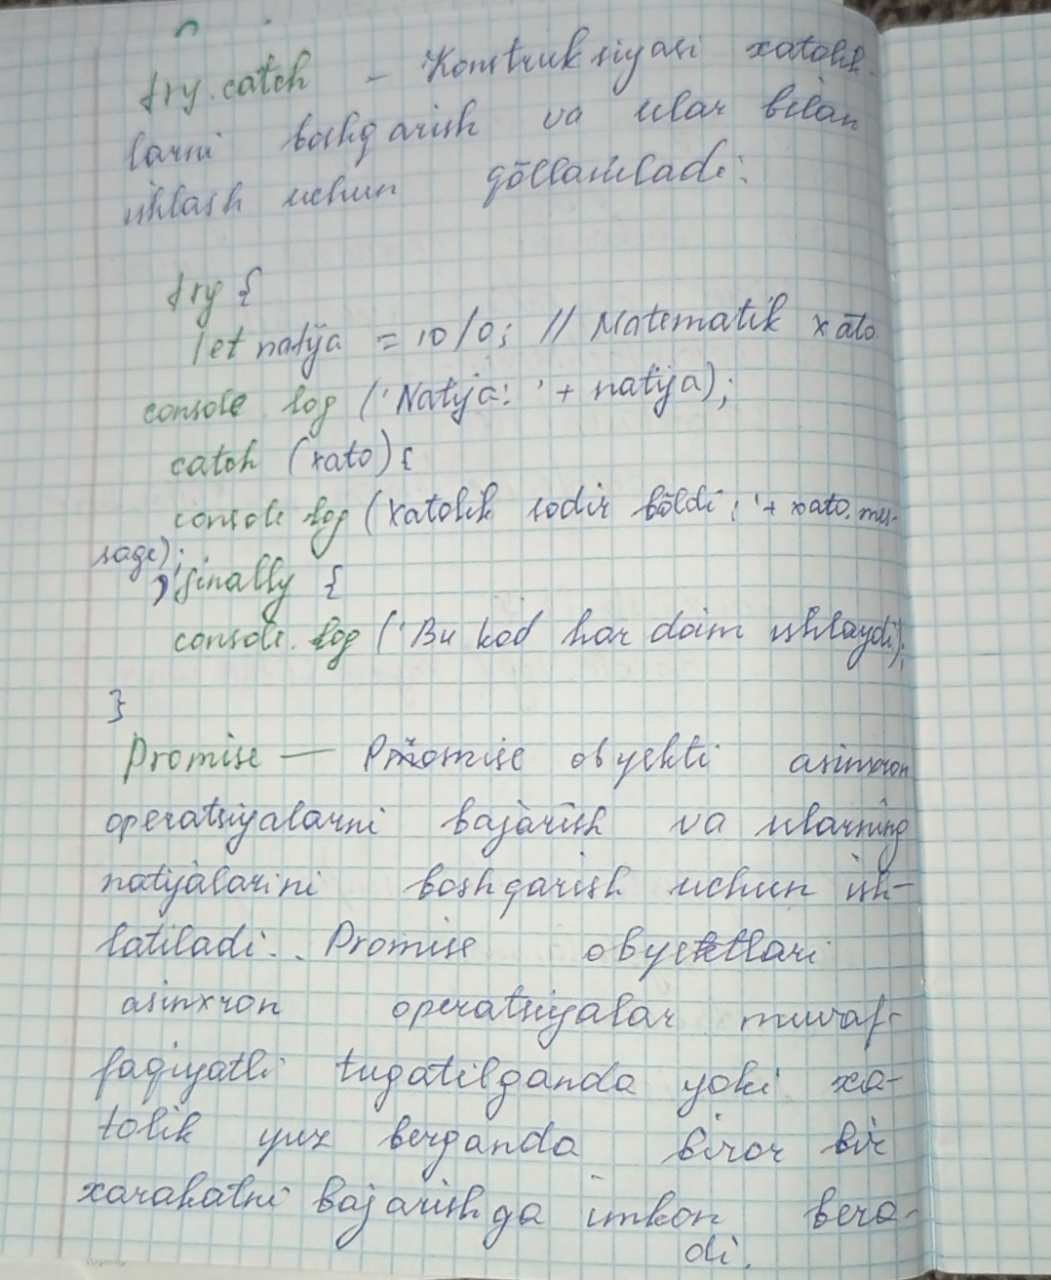 try.catch – Konstruksiyasi xatolik-
larni boshqarish va ular bilan
ishlash uchun qōllaniladi:
try {
let natija = 10/0; // Matematik xato
console log ('Natija: ' + natija);
catch (xato) {
console log (xatolik sodir bōldi : '+ xato.mes-
sage);
} finally {
console.log ('Bu kod har doim ishlaydi');
}
Promise — Promise obyekti asinxron
operatsiyalarni bajarish va ularning
natijalarini boshqarish uchun ish-
latiladi.. Promise obyektlari
asinxron operatsiyalar muvaf-
faqiyatli tugatilganda yoki xa-
tolik yuz berganda biror bir
xarakatni bajarishga imkon bera-
di.